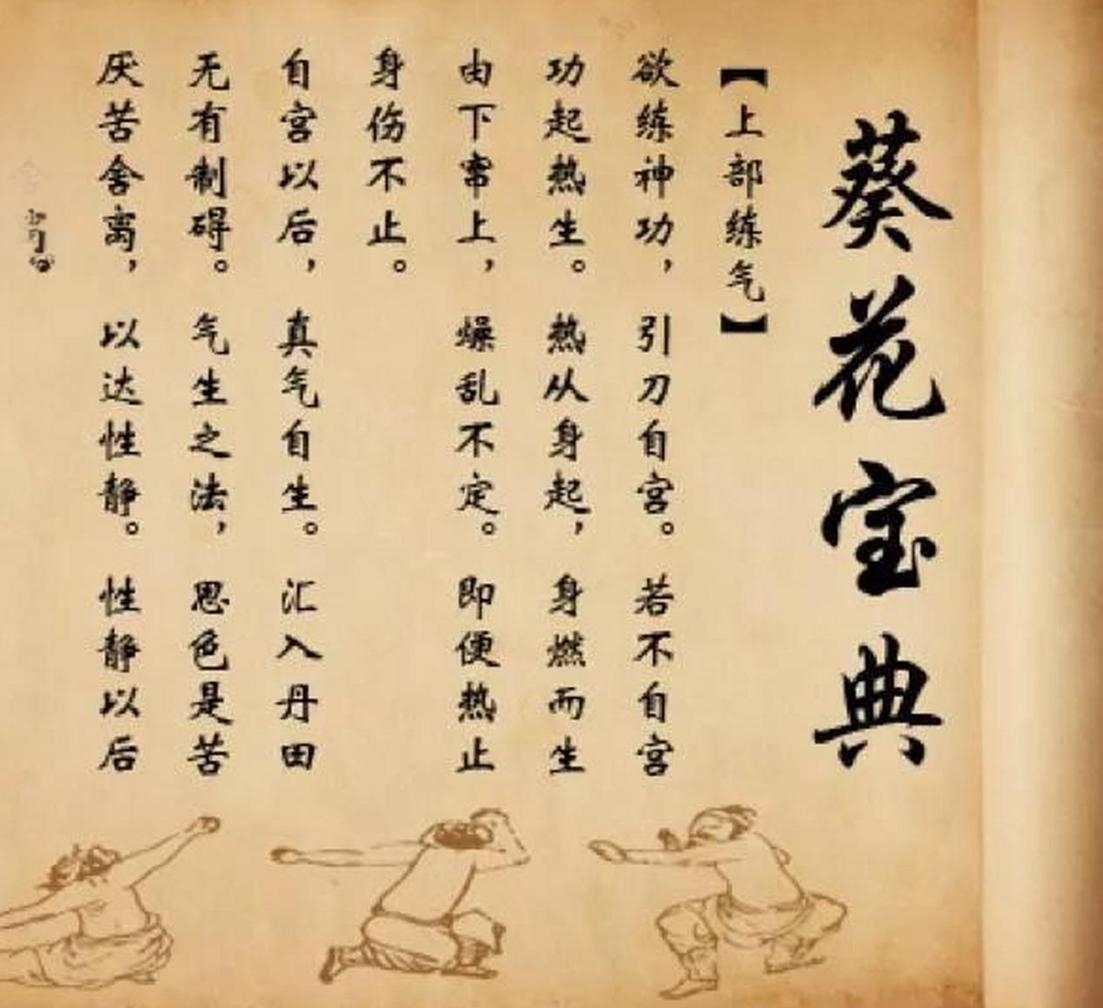 葵花宝典
【上部练气】
欲练神功，引刀自宫。若不自宫
功起热生。热从身起，身燃而生
由下窜上，燥乱不定。即便热止
身伤不止。
自宫以后，真气自生。汇入丹田
无有制碍。气生之法，思色是苦
厌苦舍离，以达性静。性静以后